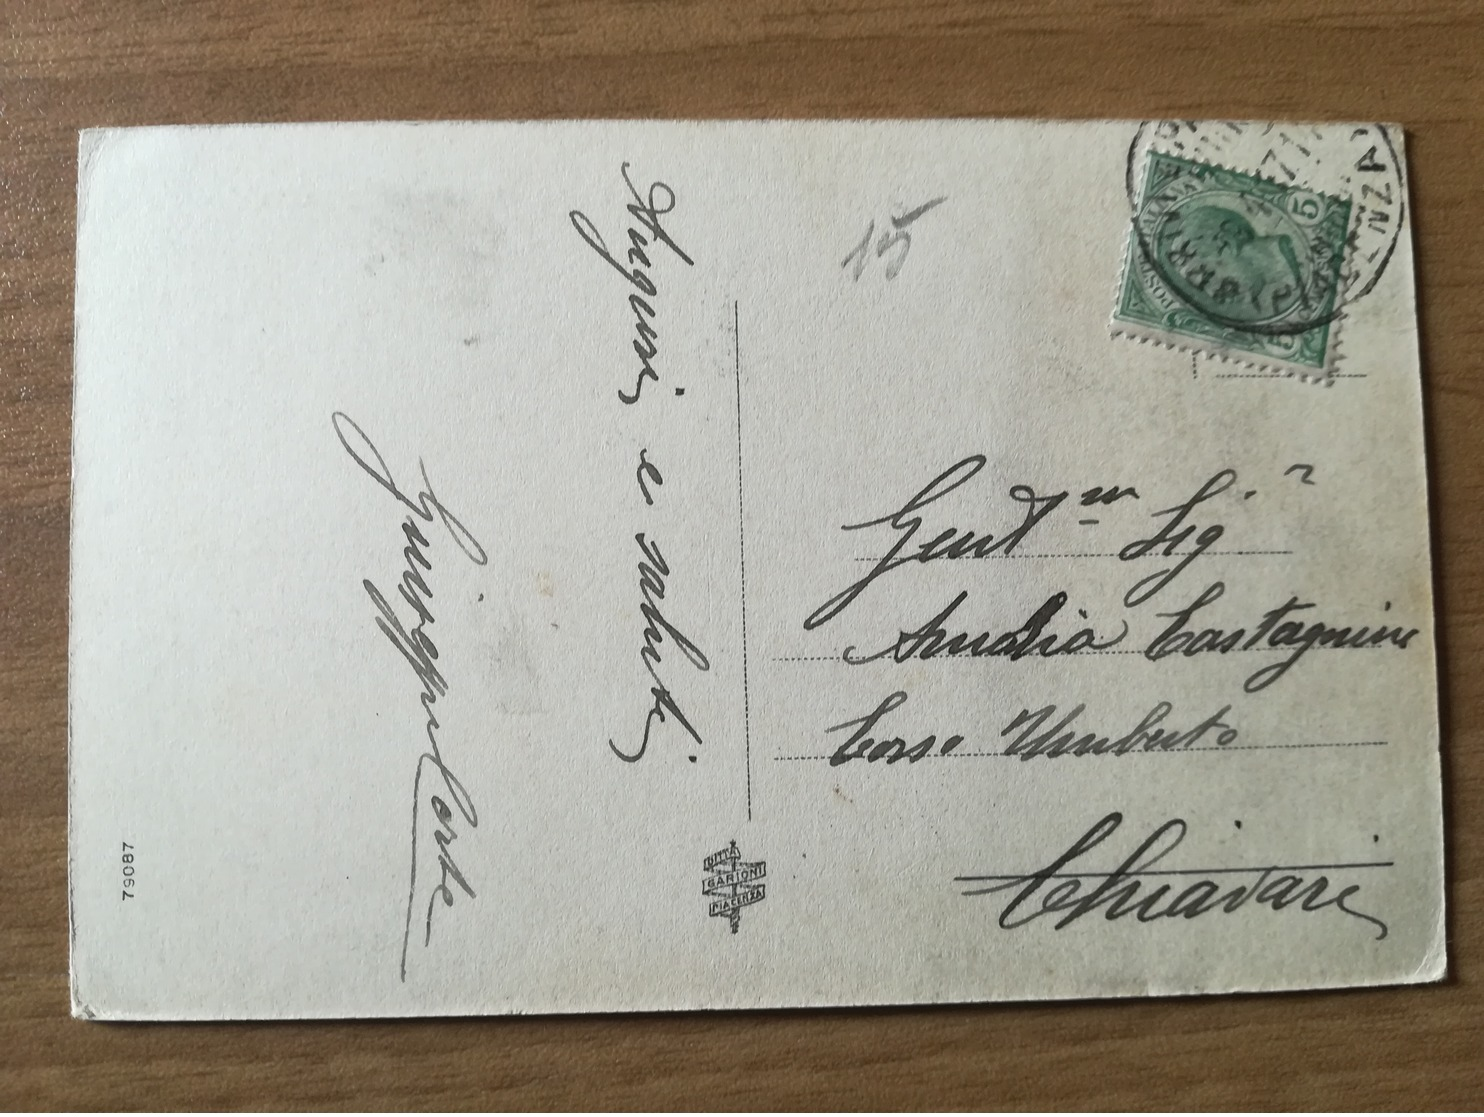 Auguri e saluti
Giuseppe Corte
15
5 5
POSTE
ARRIV
Gent ᵐᵃ Sigᵃ
Amalia Castagnino
Corso Umberto
Chiavari
DITTA
GARIONI
PIACENZA
79087